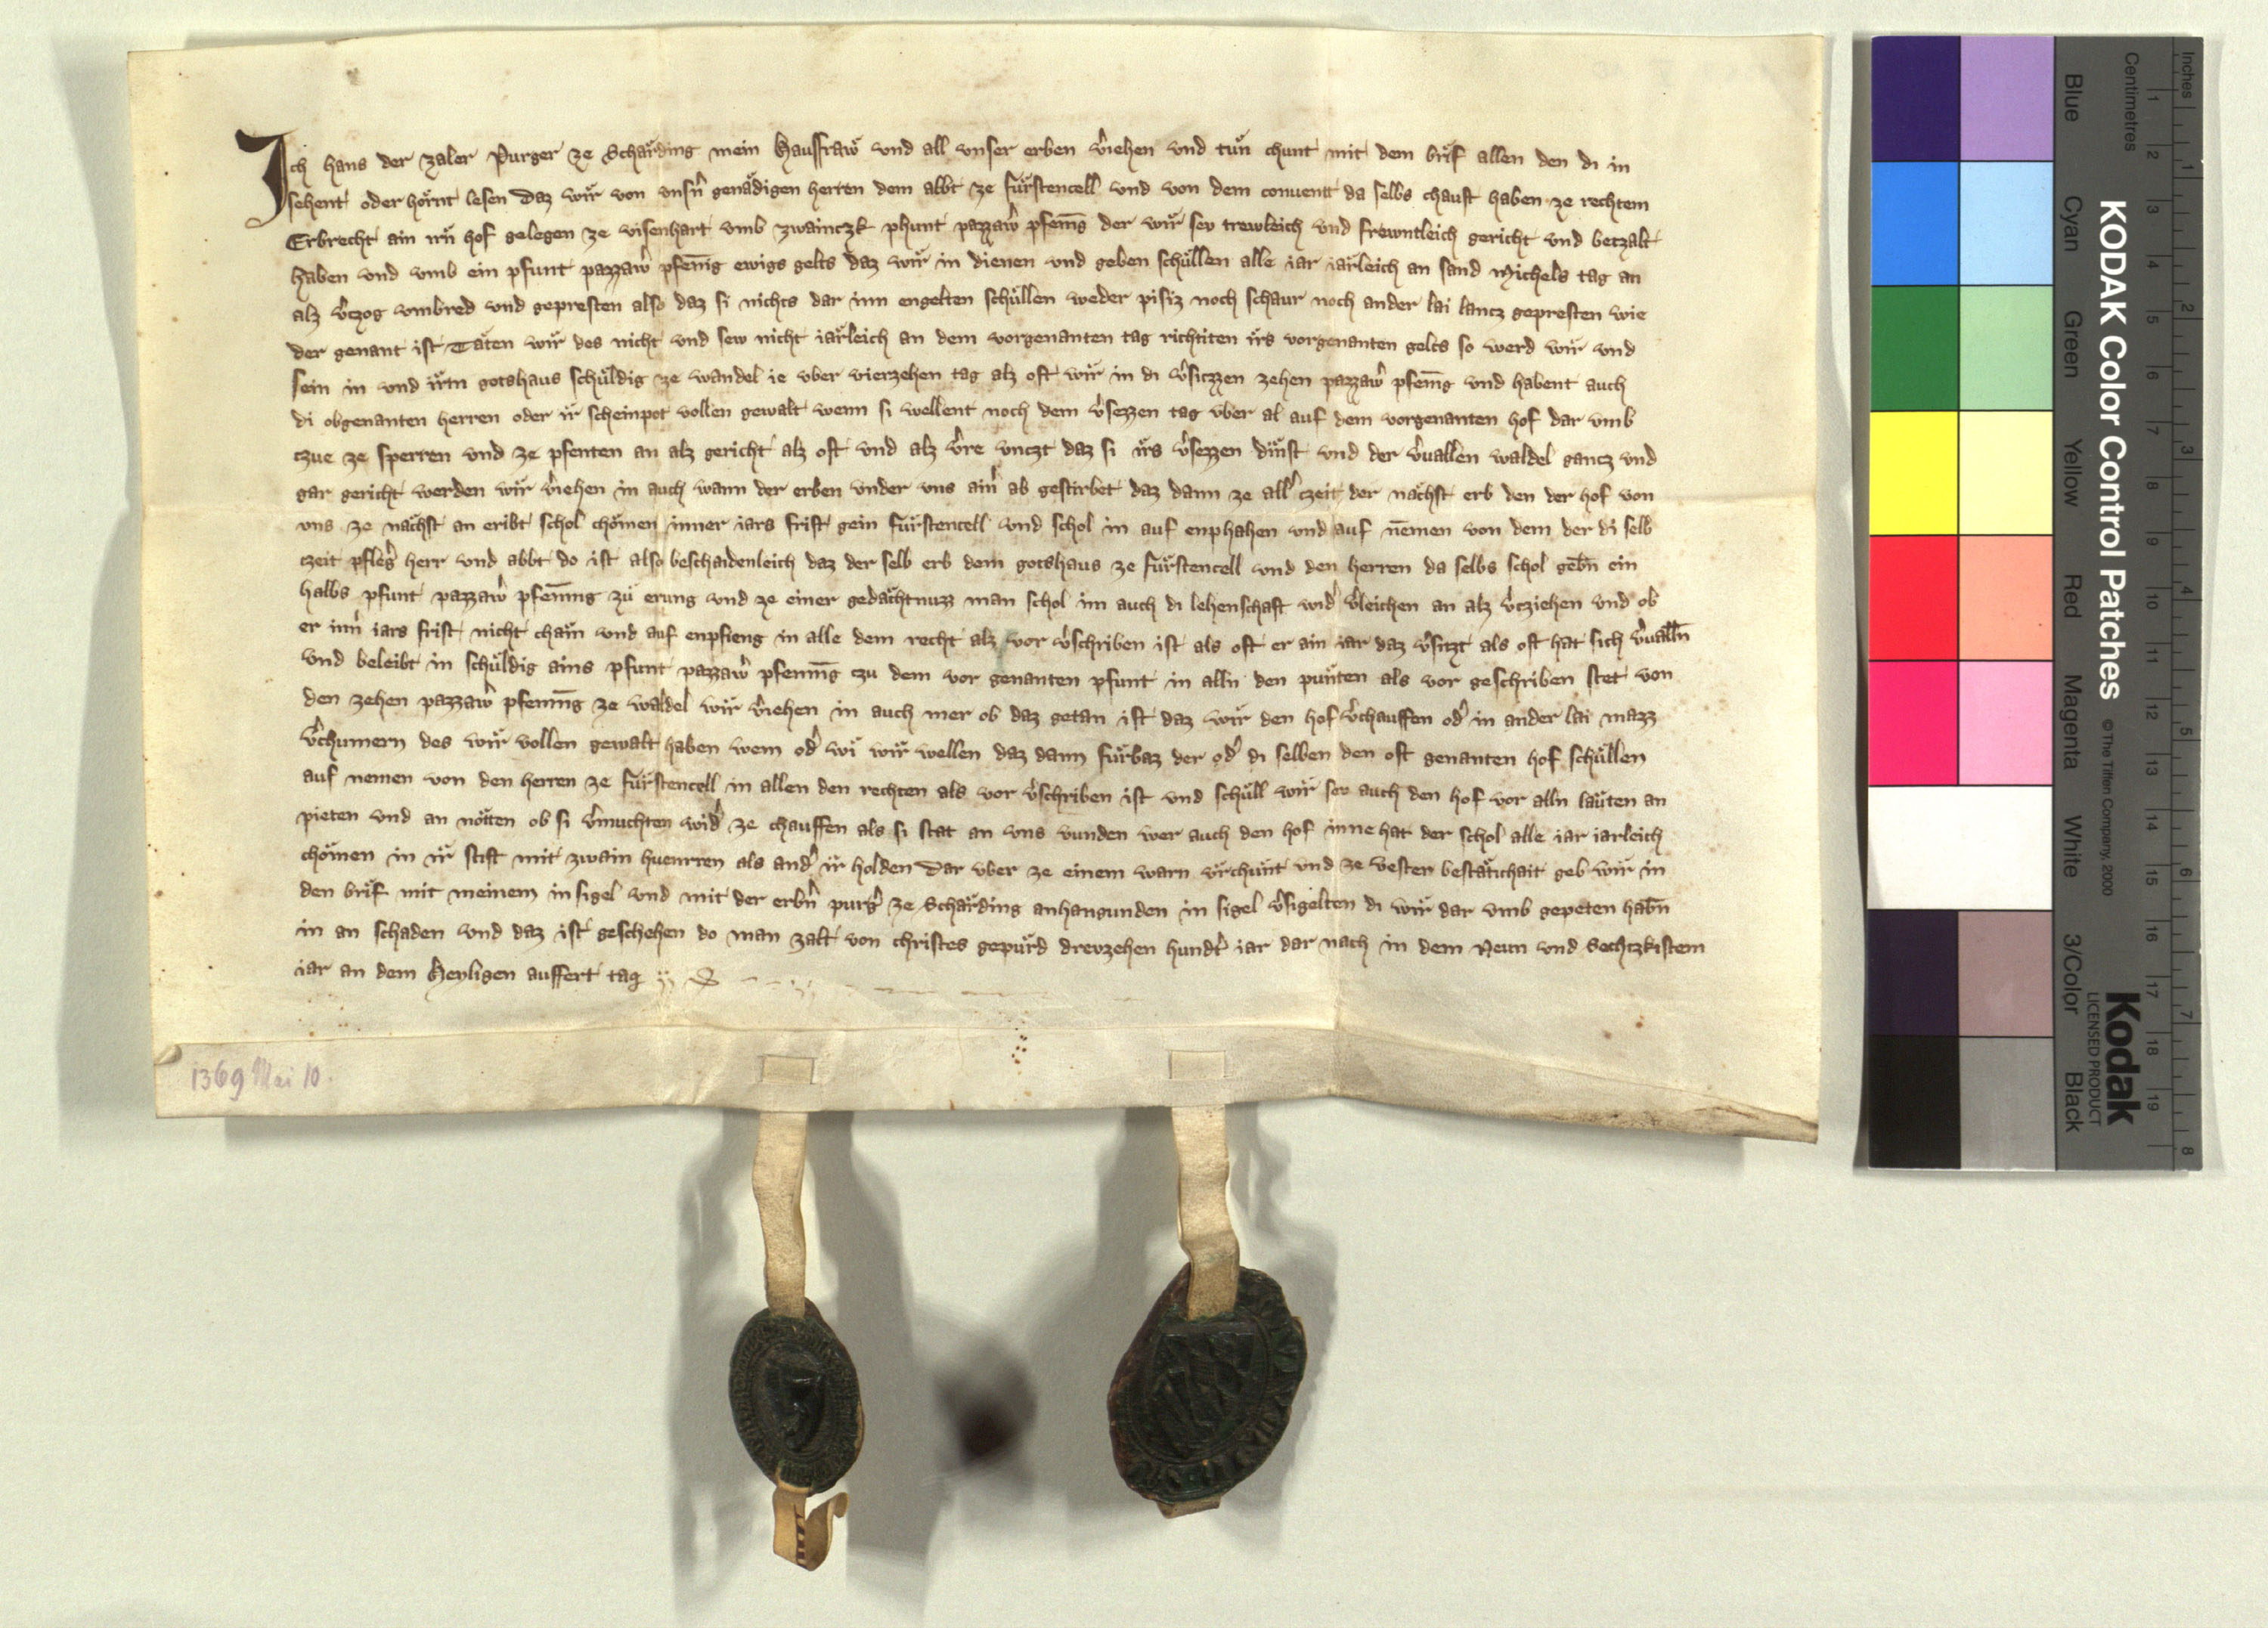 Ich hans der zaler Purger ze Schaͤrding mein Hausfraw vnd all vnser erben v̂iehen vnd tuͤn chunt mit dem brif allen den di in
sehent oder hoͤrnt lesen Daz wir von vnsn̂ genaͤdigen herren dem abbt ze fuͤrstencell vnd von dem conuentt da selbs chauft haben ze rechtem
Erbrecht ain irn̄ hof gelegen ze visenhart vmb zwainczk phunt pazzaŵ pfenīg der wir sev trewleich vnd frewntleich gericht vnd betzalt
haben vnd vmb ein pfunt pazzaŵ pfenīg ewigs gelts daz wir in dienen vnd geben schuͤllen alle iar iaͤrleich an sand Michels tag an
alz v̂czog vmbred vnd gepresten also daz si nichts dar inn engelten schuͤllen weder pisiz noch schaur noch ander lai lancz gepresten wie
der genant ist Taͤten wir des nicht vnd sew nicht iaͤrleich an dem vorgenanten tag richtiten irs vorgenanten gelts so werd wir vnd
sein in vnd irm gotshaus schuͤldig ze wandel ie vber vierzehen tag alz oft wir in di v̂siczzen zehen pazzaŵ pfenīg vnd habent auch
di obgenanten herren oder ir scheinpot vollen gewalt wenn si wellent noch dem v̂sezzen tag vber al auf dem vorgenanten hof dar vmb
czue ze sperren vnd ze pfenten an alz gericht alz oft vnd alz v̂re vnczt daz si irs v̂sezzen dinst vnd der v̂uallen waldel gancz vnd
gar gericht werden wir v̂iehen in auch wann der erben vnder vns ain̂ ab gestirbet daz dann ze all̂ czeit der naͤchst erb den der hof von
vns ze naͤchst an eribt schol choͤmen inner iars frist gein fuͤrstencell vnd schol in auf enphahen vnd auf nēmen von dem der di selb
czeit pfleĝ herr vnd abbt do ist also beschaidenleich daz der selb erb dem gotshaus ze fuͤrstencell vnd den herren da selbs schol geb̄n ein
halbs pfunt pazzaŵ pfenn̄ng zuͤ erung vnd ze einer gedaͤchtnuzz man schol im auch di lehenschaft wid̂ v̂leichen an alz v̂cziehen vnd ob
er inn̂ iars frist nicht chaͤm vnd auf enpfieng in alle dem recht alz vor v̂schriben ist als oft er ain iar daz v̂sitzt als oft hat sich v̂ualln̄
vnd beleibt in schuͤldig ains pfunt pazzaŵ pfennīg czu dem vor genanten pfunt in alln den puͤnten als vor geschriben stet von
den zehen pazzaŵ pfennīg ze waldel wir v̂iehen in auch mer ob daz getan ist daz wir den hof v̂chauffen od̂ in ander lai mazz
v̂chumern des wir vollen gewalt haben wem od̂ wi wir wellen daz dann fuͤrbaz der od̂ di selben den oft genanten hof schuͤllen
auf nemen von den herren ze fuͤrstencell in allen den rechten als vor v̂schriben ist vnd schuͤll wir sev auch den hof vor alln laͤuten an
pieten vnd an noͤtten ob si v̂muchten wid̂ ze chauffen als si stat an vns vunden wer auch den hof inne hat der schol alle iar iarleich
choͤmen in ir stift mit zwain huenrren als and̂ ir holden Dar vber ze einem warn vrchuͤnt vnd ze vester bestaͤtichait geb wir in
den brif mit meinem in sigel vnd mit der erb̂n purĝ ze Schaͤrding anhangunden in sigel v̂sigelten di wir dar vmb gepeten hab̄n
in an schaden vnd daz ist geschehen do man zalt von christes gepuͤrd drevzehen hundt̂ iar dar nach in dem Neun vnd Sechtzkistem
iar an dem Heyligen auffert tag
1369 Mai 10.
KODAK Color Control Patches
© The Tiffen Company, 2000
Kodak
LICENSED PRODUCT
Blue Cyan Green Yellow Red Magenta White 3/Color Black
Centimetres 1 2 3 4 5 6 7 8 9 10 11 12 13 14 15 16 17 18 19
Inches 1 2 3 4 5 6 7 8